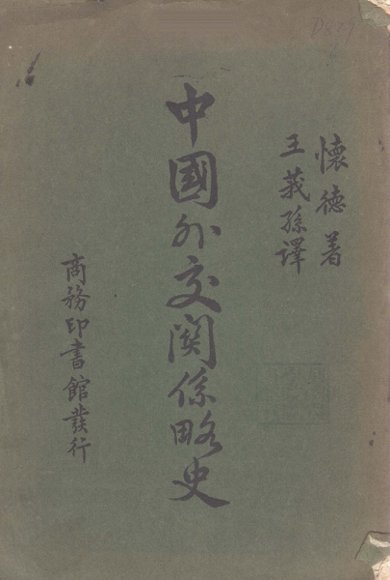 懷德著
王莪孫譯
中國外交関係略史
商務印書館發行